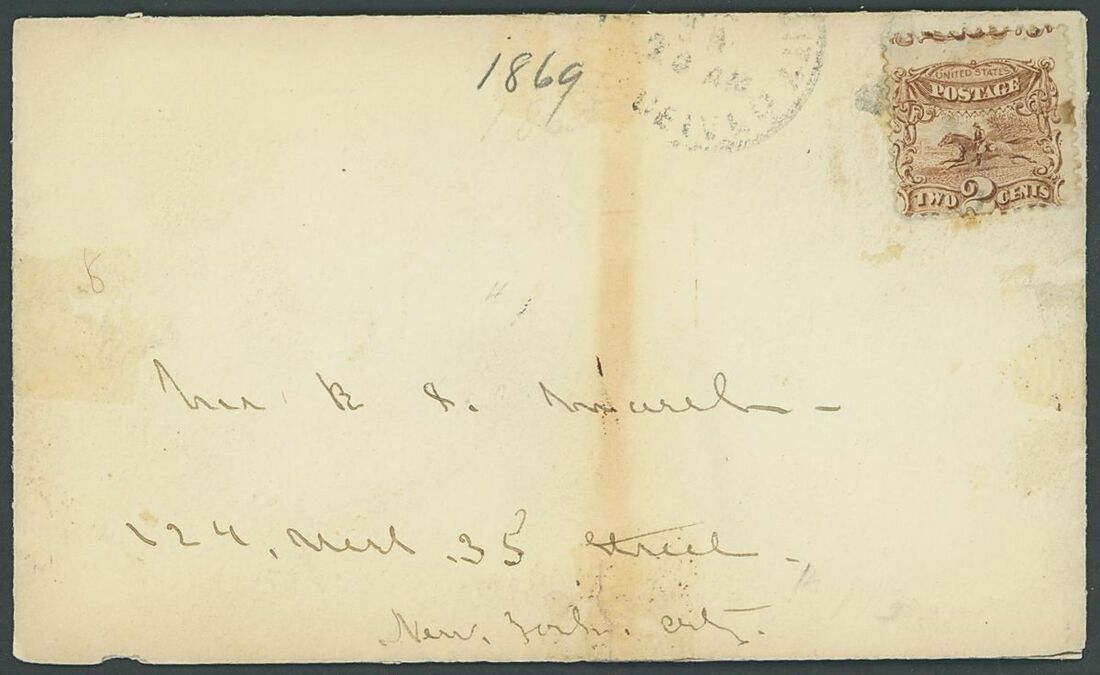 1869
UNITED STATES
POSTAGE
TWO 2 CENTS
8
Mr R
124, West 35 Street
New York City.